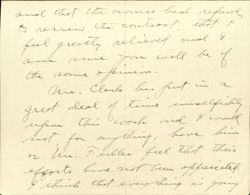 and that the owners had refused
to renew the contract, that I
feel greatly relieved and I
am sure you will be of
the same opinion.
Mr. Clark has put in a
great deal of time unselfishly
upon this work and I would
not for anything, have him
or Mr. Fuller feel that their
efforts have not been appreciated.
I think that everything is you